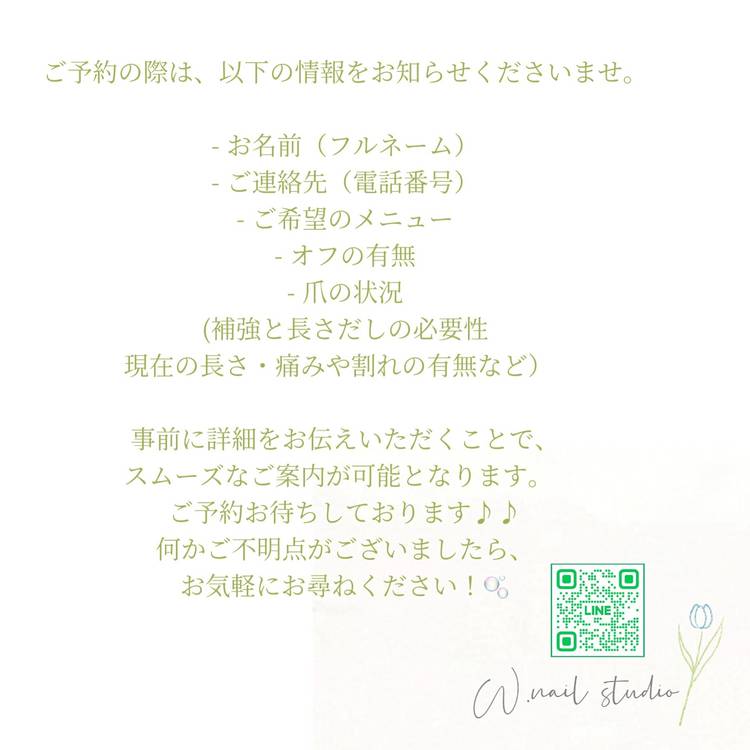 ご予約の際は、以下の情報をお知らせくださいませ。
- お名前（フルネーム）
- ご連絡先（電話番号）
- ご希望のメニュー
- オフの有無
- 爪の状況
(補強と長さだしの必要性
現在の長さ・痛みや割れの有無など）
事前に詳細をお伝えいただくことで、
スムーズなご案内が可能となります。
ご予約お待ちしております♪♪
何かご不明点がございましたら、
お気軽にお尋ねください！🫧
LINE
W.nail studio